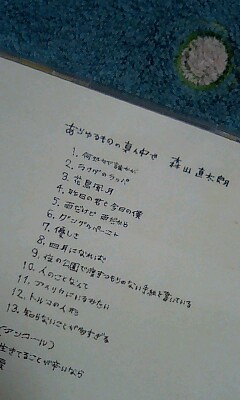 あらゆるものの真ん中で　森山直太朗
1. 何処かで誰かが
2. ラクダのラッパ
3. 花鳥風月
4. 昨日の君と今日の僕
5. 雨だけど雨だから
6.
7. 優しさ
8. 四月になれば
9. 夜の公園で渡すつもりのない手紙を書いている
10. 人のことなんて
11. アメリカにいるみたい
12. トルコの人形
13. 知らないことが多すぎる
(アンコール)
生きてることが辛いなら